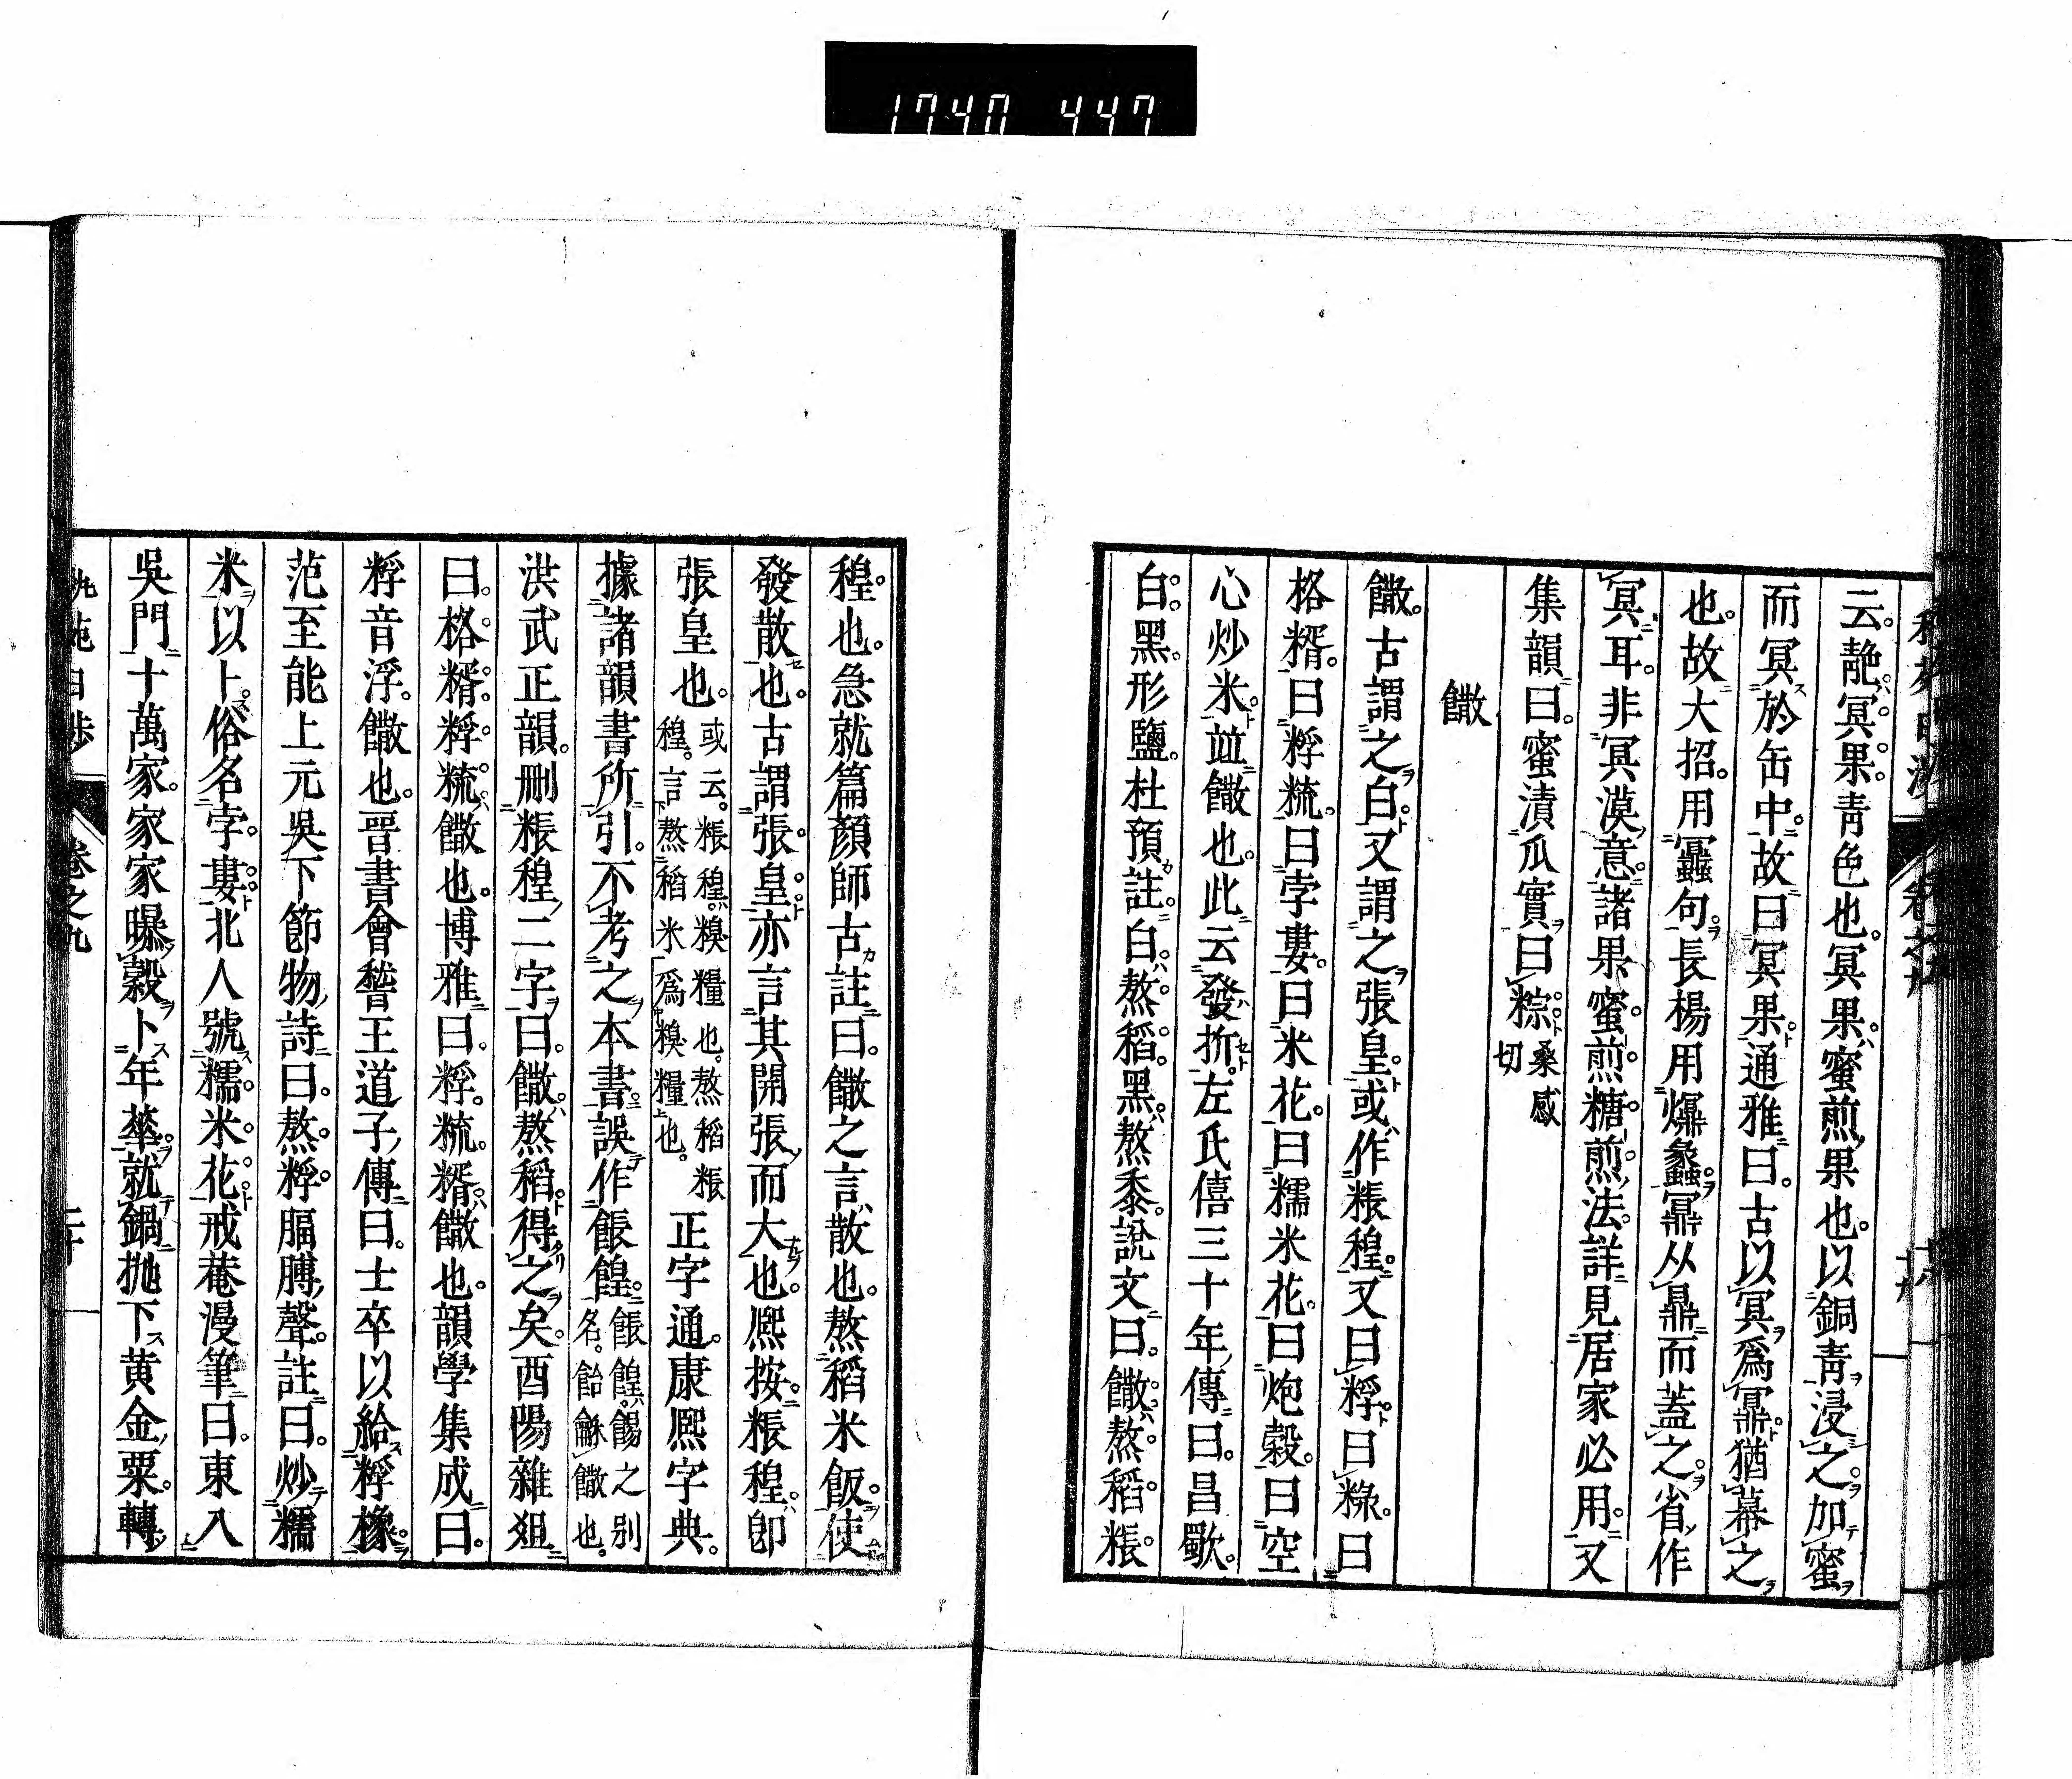 1740 447
云。靘冥果。靑色也。冥果。蜜煎果也。以銅靑浸之。加蜜
而冥於缶中。故曰冥果。通雅曰。古以冥爲鼏。猶幕之
也。故大招。用 句。長楊用 从鼎而蓋之。省作
冥耳。非冥漠意。諸果蜜煎糖煎法。詳見居家必用。又
集韻曰。蜜漬瓜實曰粽。桑感切
饊
饊。古謂之白。又謂之張皇。或作粻䅣。又曰䊧。曰䊵。曰
格糈。曰䊧䊐。曰孛婁。曰米花。曰糯米花。曰炮穀。曰空
心炒米。竝饊也。此云發折。左氏僖三十年傳曰。昌歜。
白。黑。形鹽。杜預註。白。熬稻。黑。熬黍。說文曰。饊。熬稻粻
䅣也。急就篇顏師古註曰。饊之言散也。熬稻米飯。使
發散也。古謂張皇。亦言其開張而大也。熈按。粻䅣。卽
張皇也。或云。粻䅣。糗糧也。熬稻粻䅣。言熬稻米爲糗糧也。正字通。康熈字典。
據諸韻書所引。不考之本書。誤作餦餭。餦餭。餳之別名。飴龢饊也。
洪武正韻。刪粻䅣二字。曰。饊。熬稻。得之矣。酉陽雜俎
曰。格糈。䊧䊐。饊也。博雅曰。䊧䊐。糈。饊也。韻學集成曰。
䊧音浮。饊也。晋書會稽王道子傳曰。士卒以給䊧橡。
范至能上元吳下節物詩曰。熬䊧腷膊聲。註曰。炒糯
米以卜。俗名孛婁。北人號糯米花。戒菴漫筆曰。東入
吳門十萬家。家家曝穀卜年華。就鍋抛下黃金粟。轉
卷之九